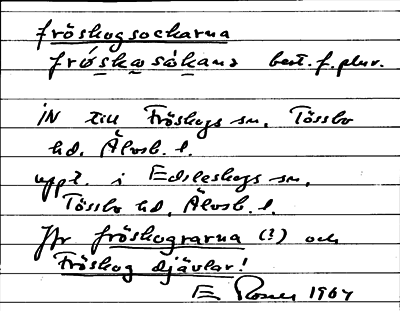 fröskogsockarna
fröskωsåkana best. f. plur.
IN till Fröskogs sn. Tössbo
hd. Älvsb. l.
uppt. i Edsleskogs sn,
Tössbo hd, Älvsb. l.
Jfr fröskograrna (?) och
Fröskog djävlar!
E Rosen 1964